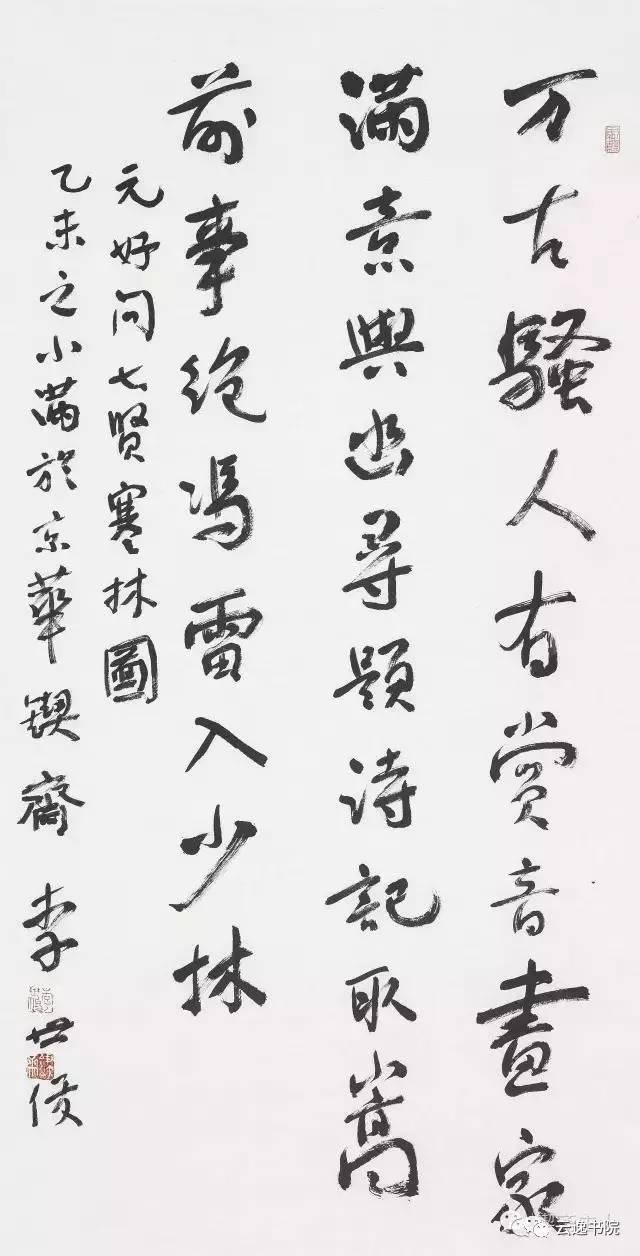 万古骚人有赏音畫家
满意興幽尋題诗記取嵩
前事绝冯雷入少林
元好问七賢寒林圖
乙未之小满於京華锲齋 李世俊
云逸书院